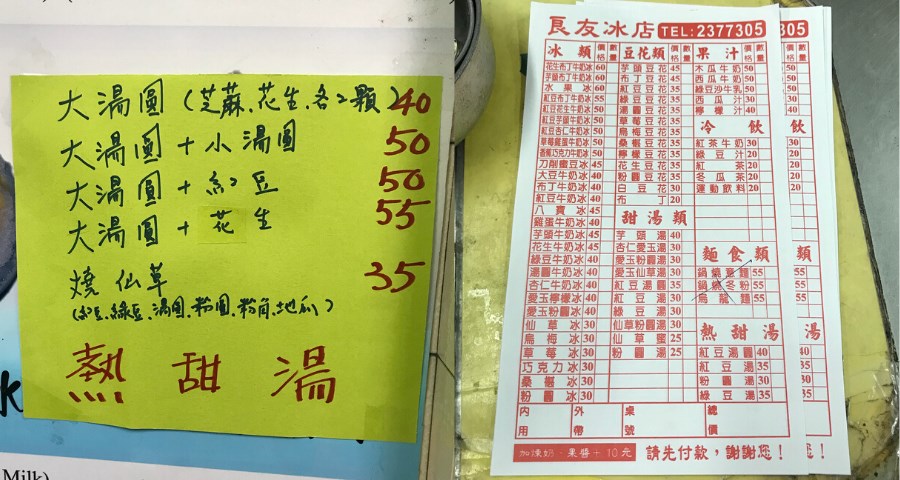 大湯圓(芝麻、花生、各2顆)40
大湯圓+小湯圓 50
大湯圓+紅豆 50
大湯圓+花生 55
燒仙草 35
(紅豆、綠豆、湯圓、粉圓、粉角、地瓜)
熱甜湯
k
Milk)
良友冰店 TEL:2377305
冰類 價格 數量
花生布丁牛奶冰 60
芋頭布丁牛奶冰 60
水果冰 60
紅豆布丁牛奶冰 55
紅豆花生牛奶冰 50
紅豆芋頭牛奶冰 50
紅豆杏仁牛奶冰 50
草莓雞蛋牛奶冰 50
香蕉巧克力牛奶冰 50
刀削蜜豆冰 45
大豆牛奶冰 40
布丁牛奶冰 40
紅豆牛奶冰 40
八寶冰 45
雞蛋牛奶冰 40
芋頭牛奶冰 45
花生牛奶冰 45
綠豆牛奶冰 40
湯圓牛奶冰 40
杏仁牛奶冰 40
愛玉檸檬冰 40
愛玉粉圓冰 40
仙草冰 30
烏梅冰 30
草莓冰 30
巧克力冰 30
桑椹冰 30
粉圓冰 30
豆花類 價格 數量
芋頭豆花 45
布丁豆花 45
紅豆豆花 35
綠豆豆花 35
湯圓豆花 35
草莓豆花 35
烏梅豆花 35
桑椹豆花 35
檸檬豆花 35
花生豆花 35
粉圓豆花 35
白豆花 30
布丁 20
甜湯類
芋頭湯 40
杏仁愛玉湯 30
愛玉粉圓湯 30
愛玉仙草湯 30
紅豆湯圓 35
紅豆湯 30
綠豆湯 30
仙草粉圓湯 30
仙草蜜 25
粉圓湯 25
果汁 價格 數量
木瓜牛奶 50
西瓜牛奶 50
綠豆沙牛乳 50
西瓜汁 30
檸檬汁 40
冷飲
紅茶牛奶 30
綠豆汁 20
紅茶 20
冬瓜茶 20
運動飲料 20
麵食類
鍋燒意麵 55
鍋燒冬粉 55
烏龍麵 55
熱甜湯
紅豆湯圓 40
紅豆湯 35
粉圓湯 30
綠豆湯 35
內用 外帶 桌號 總價
加煉奶、果醬+10元 請先付款,謝謝您!
305